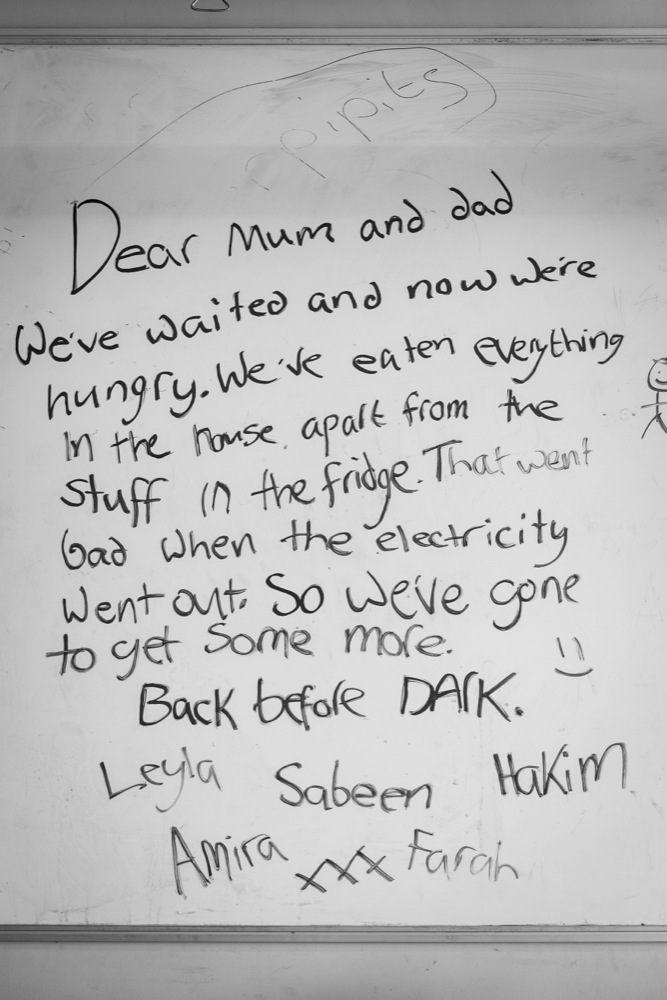 pipits
Dear Mum and dad
We've waited and now we're
hungry. We've eaten everything
In the house apart from the
Stuff in the fridge. That went
bad when the electricity
went out. So we've gone
to get some more.
Back before DARK.
Leyla Sabeen Hakim
Amira xxx Farah